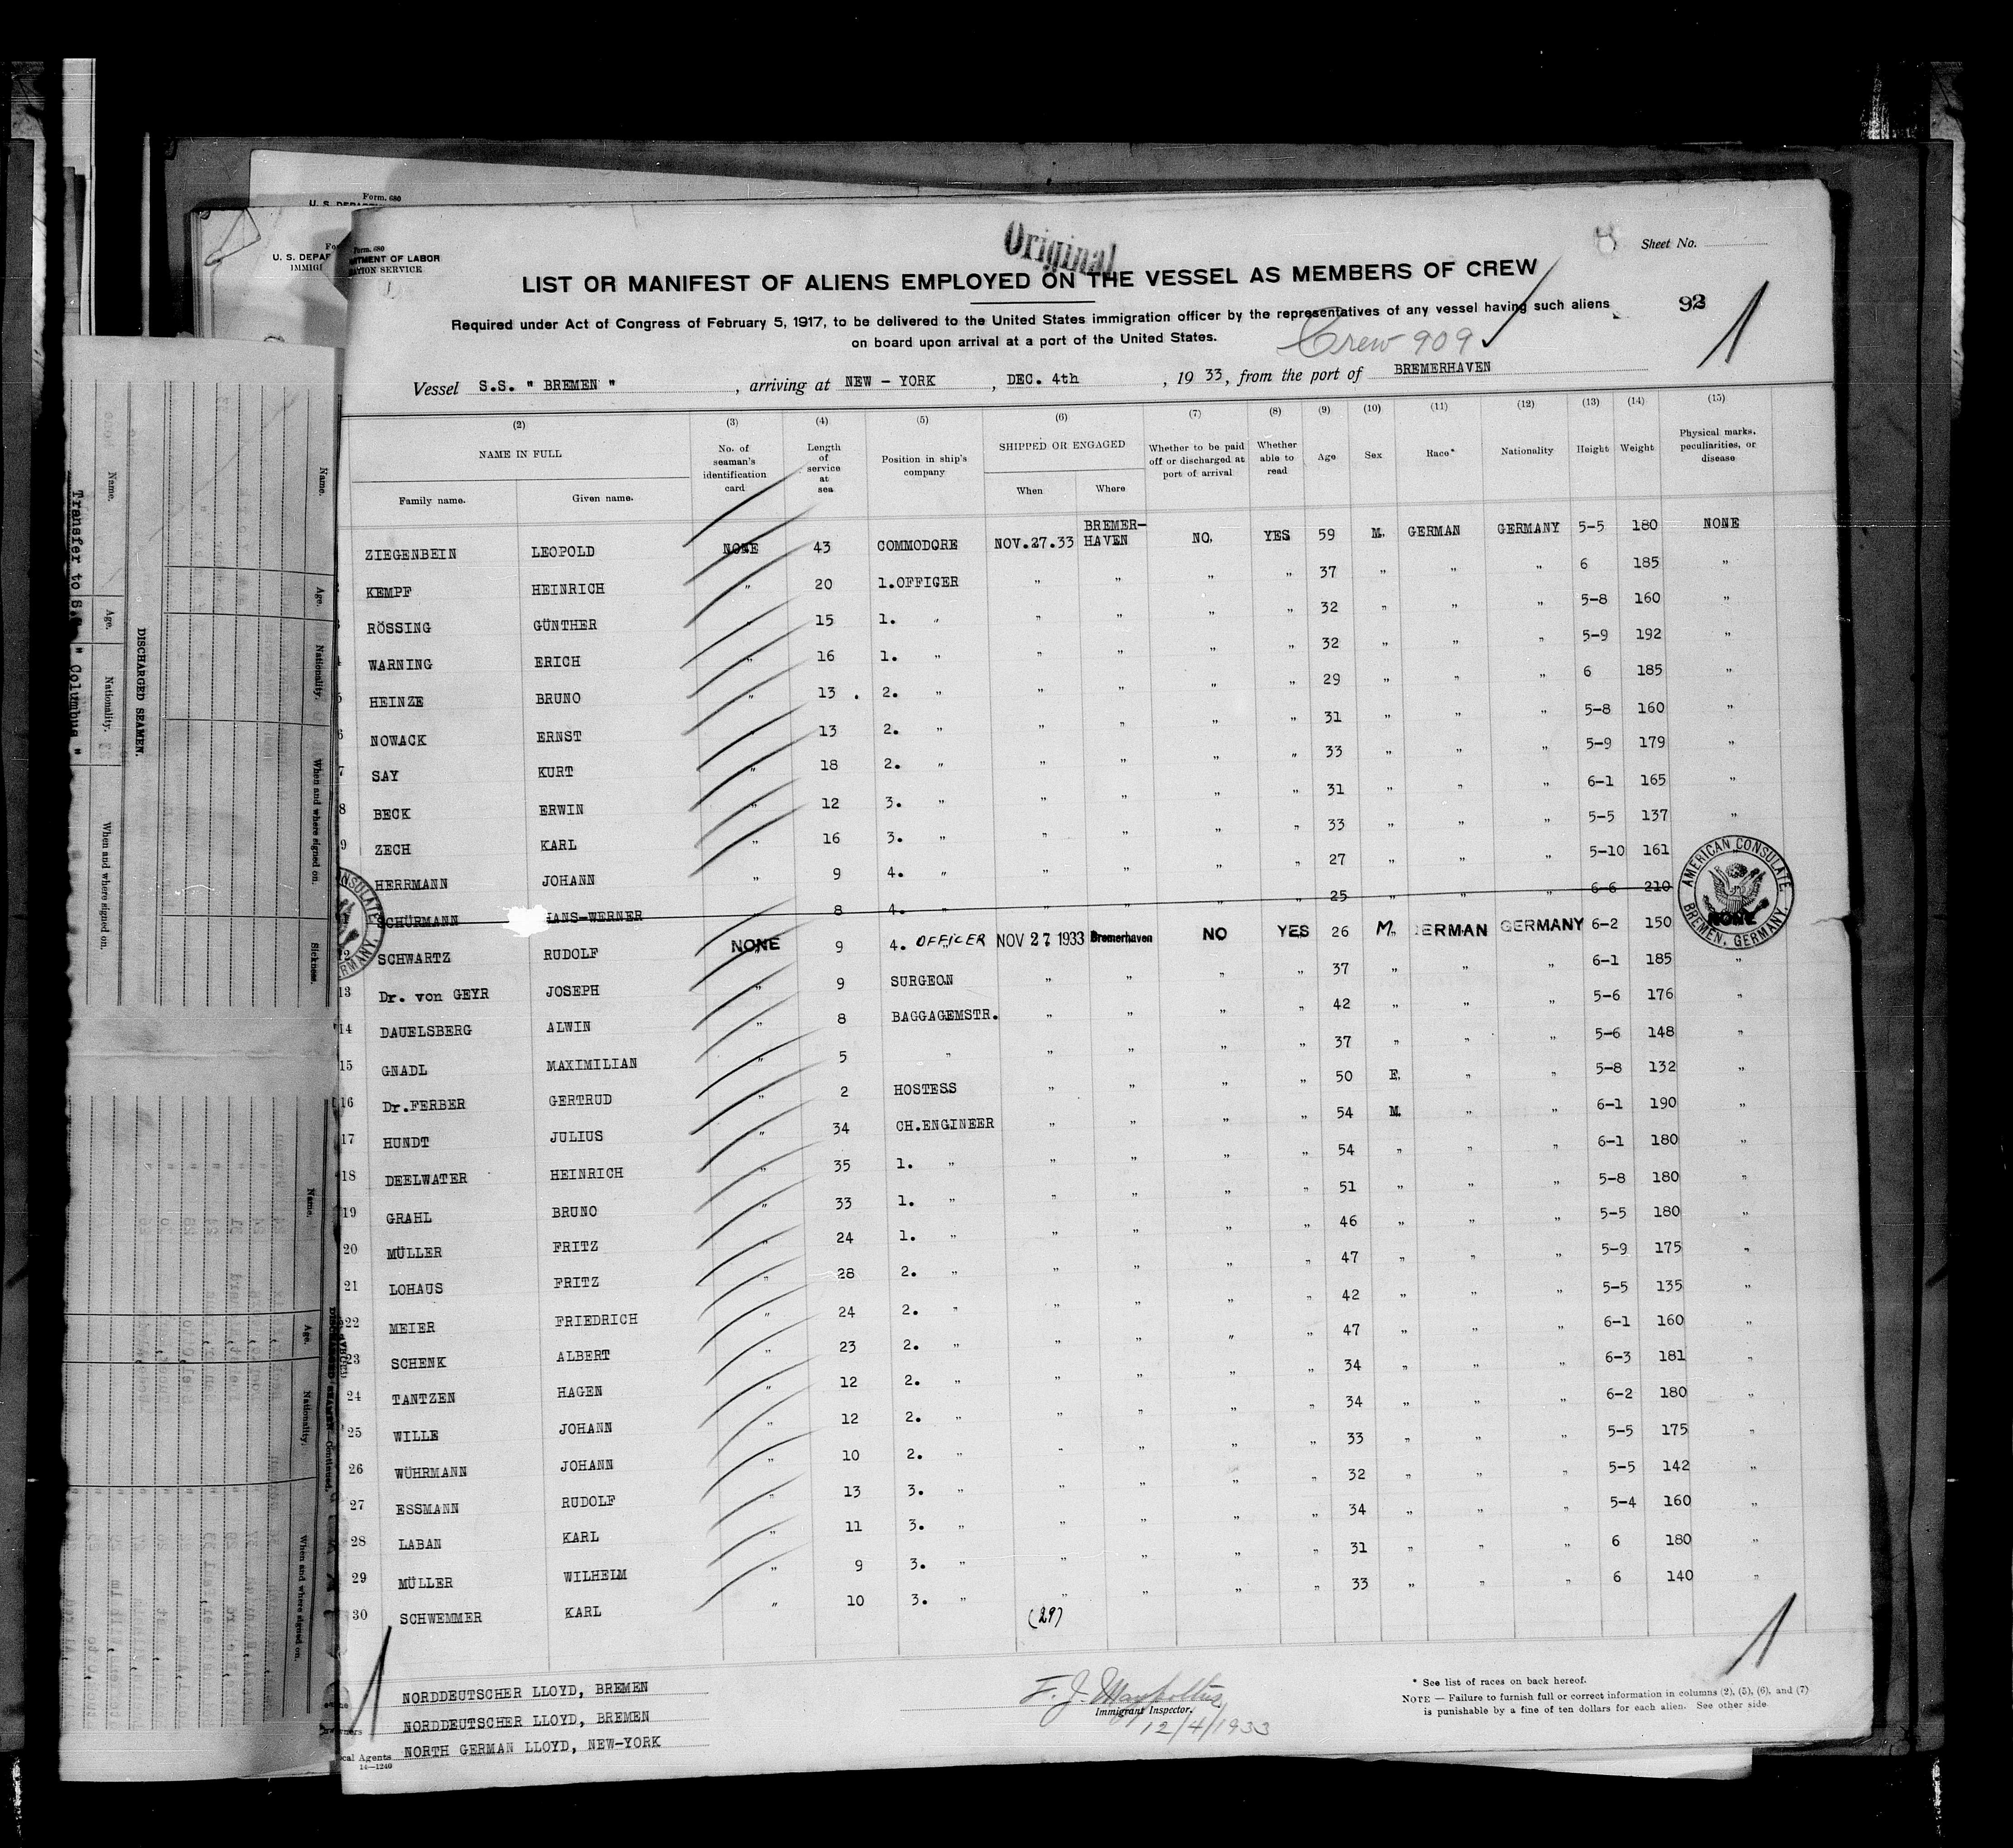 Form. 680
U. S. DEPARTMENT OF LABOR
IMMIGRATION SERVICE
Original
Sheet No.
LIST OR MANIFEST OF ALIENS EMPLOYED ON THE VESSEL AS MEMBERS OF CREW
92
Required under Act of Congress of February 5, 1917, to be delivered to the United States immigration officer by the representatives of any vessel having such aliens
on board upon arrival at a port of the United States.
Crew 909
Vessel S.S. " BREMEN " , arriving at NEW - YORK , DEC. 4th , 19 33, from the port of BREMERHAVEN
(2) (3) (4) (5) (6) (7) (8) (9) (10) (11) (12) (13) (14) (15)
NAME IN FULL
Family name. Given name.
No. of seaman's identification card
Length of service at sea
Position in ship's company
SHIPPED OR ENGAGED
When Where
Whether to be paid off or discharged at port of arrival
Whether able to read
Age Sex Race* Nationality Height Weight
Physical marks, peculiarities, or disease
ZIEGENBEIN LEOPOLD NONE 43 COMMODORE NOV.27.33 BREMER-HAVEN NO. YES 59 M. GERMAN GERMANY 5-5 180 NONE
KEMPF HEINRICH " 20 1.OFFICER " " " " 37 " " " 6 185 "
RÖSSING GÜNTHER " 15 1. " " " " " 32 " " " 5-8 160 "
WARNING ERICH " 16 1. " " " " " 32 " " " 5-9 192 "
5 HEINZE BRUNO " 13 2. " " " " " 29 " " " 6 185 "
6 NOWACK ERNST " 13 2. " " " " " 31 " " " 5-8 160 "
7 SAY KURT " 18 2. " " " " " 33 " " " 5-9 179 "
8 BECK ERWIN " 12 3. " " " " " 31 " " " 6-1 165 "
9 ZECH KARL " 16 3. " " " " " 33 " " " 5-5 137 "
HERRMANN JOHANN " 9 4. " " " " " 27 " " " 5-10 161
SCHÜRMANN HANS-WERNER " 8 4. " " " " " 25 " " " 6-6 210
SCHWARTZ RUDOLF NONE 9 4. OFFICER NOV 27 1933 Bremerhaven NO YES 26 M. GERMAN GERMANY 6-2 150 NONE
13 Dr. von GEYR JOSEPH " 9 SURGEON " " " " 37 " " " 6-1 185 "
14 DAUELSBERG ALWIN " 8 BAGGAGEMSTR. " " " " 42 " " " 5-6 176 "
15 GNADL MAXIMILIAN " 5 " " " " " 37 " " " 5-6 148 "
16 Dr.FERBER GERTRUD " 2 HOSTESS " " " " 50 F. " " 5-8 132 "
17 HUNDT JULIUS " 34 CH.ENGINEER " " " " 54 M. " " 6-1 190 "
18 DEELWATER HEINRICH " 35 1. " " " " " 54 " " " 6-1 180 "
19 GRAHL BRUNO " 33 1. " " " " " 51 " " " 5-8 180 "
20 MÜLLER FRITZ " 24 1. " " " " " 46 " " " 5-5 180 "
21 LOHAUS FRITZ " 28 2. " " " " " 47 " " " 5-9 175 "
22 MEIER FRIEDRICH " 24 2. " " " " " 42 " " " 5-5 135 "
23 SCHENK ALBERT " 23 2. " " " " " 47 " " " 6-1 160 "
24 TANTZEN HAGEN " 12 2. " " " " " 34 " " " 6-3 181 "
25 WILLE JOHANN " 12 2. " " " " " 34 " " " 6-2 180 "
26 WÜHRMANN JOHANN " 10 2. " " " " " 33 " " " 5-5 175 "
27 ESSMANN RUDOLF " 13 3. " " " " " 32 " " " 5-5 142 "
28 LABAN KARL " 11 3. " " " " " 34 " " " 5-4 160 "
29 MÜLLER WILHELM " 9 3. " " " " " 31 " " " 6 180 "
30 SCHWEMMER KARL " 10 3. " " " " " 33 " " " 6 140 "
(29)
AMERICAN CONSULATE
BREMEN, GERMANY.
NORDDEUTSCHER LLOYD, BREMEN
NORDDEUTSCHER LLOYD, BREMEN
Local Agents NORTH GERMAN LLOYD, NEW-YORK
14-1240
Immigrant Inspector.
12/4/1933
* See list of races on back hereof.
NOTE — Failure to furnish full or correct information in columns (2), (5), (6), and (7)
is punishable by a fine of ten dollars for each alien. See other side.
Transfer to S.S. " Columbus "
DISCHARGED SEAMEN.
Name. Age. Nationality. When and where signed on.
Name. Age. Nationality. When and where signed on. Sickness.
Name. Age. Nationality. When and where signed on.